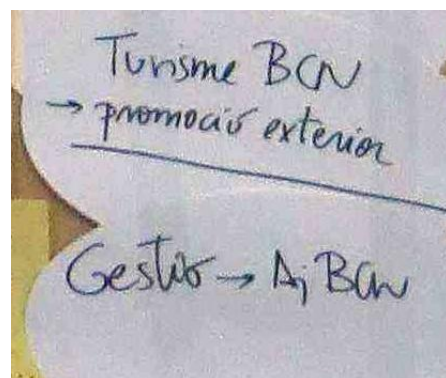 Turisme BCN
→ promoció exterior
Gestió → Aj BCN